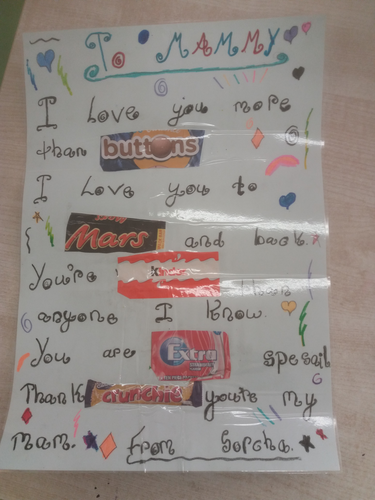 To MAMMY
I love you more
than buttons
I love you to
Mars and back.
You're Kinder than
anyone I know.
You are Extra spesail
Thank crunchie you're my
mam. From Sorcha.